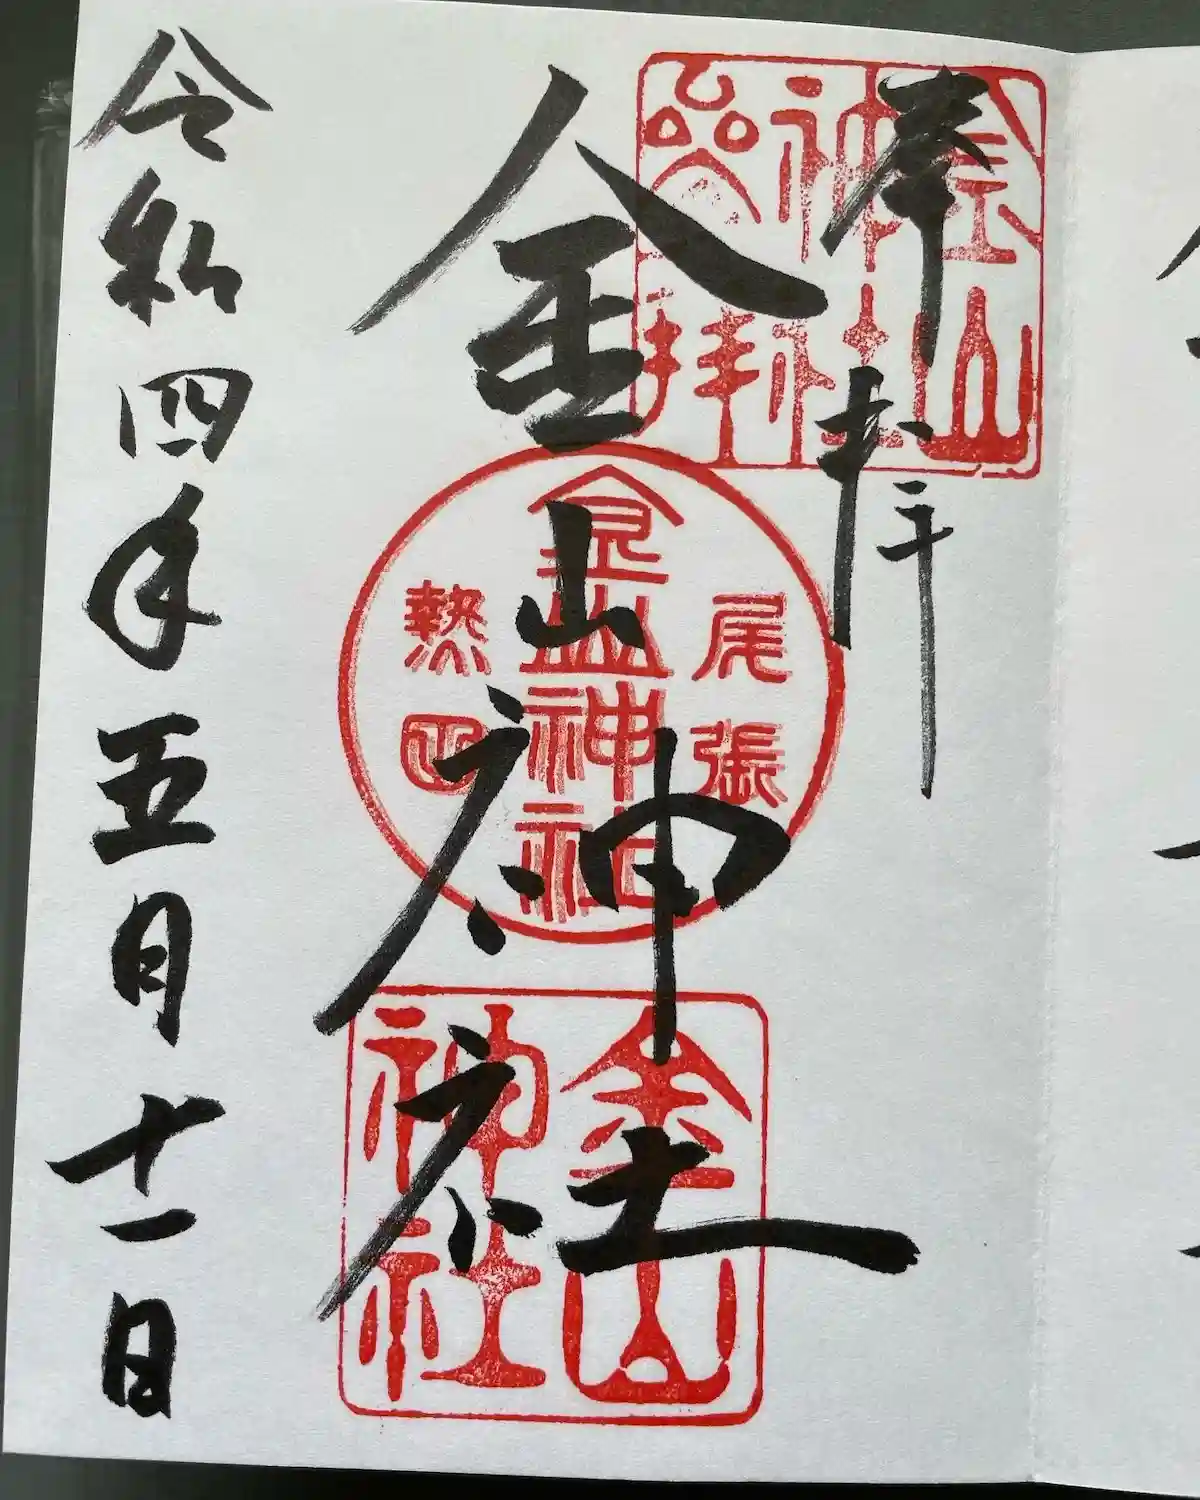 奉拝
金山神社
令和四年五月十一日
尾張
金山神社
熱田
金山
神社
金山
神社